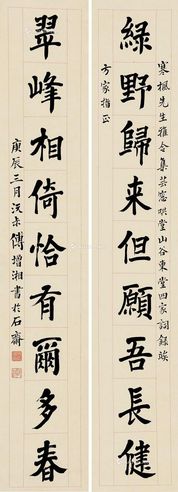 寒楓先生雅令集芸窓珙堂山谷東堂四家詞錄竢
綠野歸来但願吾長健
方家指正
翠峰相倚恰有爾多春
庚辰三月沅未傅增湘書於石齋